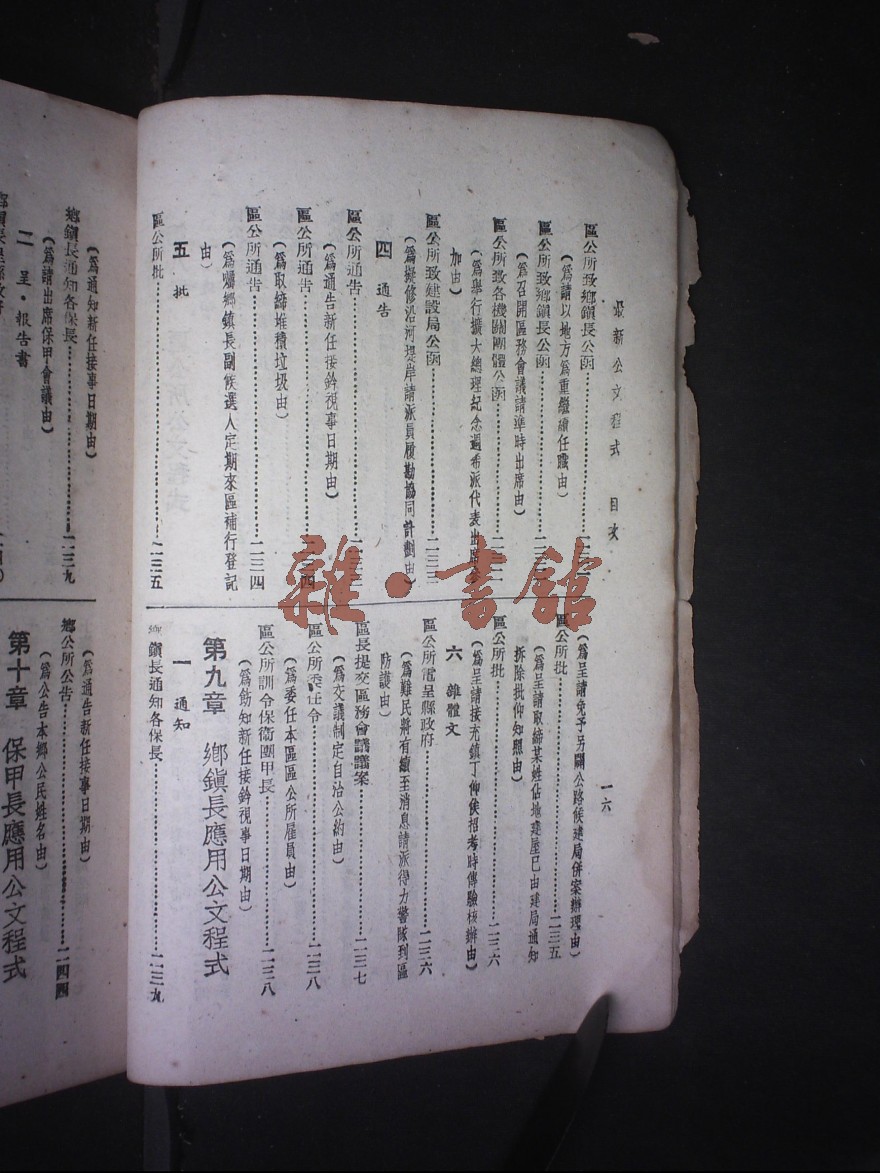 最新公文程式　目次
一六
區公所致鄉鎮長公函
（爲請以地方爲重繼續任職由）
區公所致鄉鎮長公函
（爲召開區務會議請準時出席由）
區公所致各機關團體公函
（爲舉行擴大總理紀念週希派代表出席
加由）
區公所致建設局公函……二三三
（爲擬修沿河堤岸請派員履勘協同計劃由）
四　通告
區公所通告
（爲通告新任接鈐視事日期由）
區公所通告
（爲取締堆積垃圾由）
區公所通告……二三四
（爲囑鄉鎮長副候選人定期來區補行登記
由）
五　批
區公所批……二三五
（爲呈請免予另闢公路候建局併案辦理由）
區公所批……二三五
（爲呈請取締某姓佔地建屋已由建局通知
拆除批仰知照由）
區公所批……二三六
（爲呈請接充鎮丁仰候招考時傳驗核辦由）
六　雜體文
區公所電呈縣政府……二三六
（爲難民將有續至消息請派得力警隊到區
防護由）
區長提交區務會議議案……二三七
（爲交議制定自治公約由）
區公所委任令……二三八
（爲委任本區區公所雇員由）
區公所訓令保衛團甲長……二三八
（爲飭知新任接鈐視事日期由）
第九章　鄉鎮長應用公文程式
一　通知
鄉鎮長通知各保長……二三九
（爲通知新任接事日期由）
鄉鎮長通知各保長……二三九
（爲請出席保甲會議由）
二　呈・報告書
（爲通告新任接事日期由）
鄉公所公告……二四四
（爲公告本鄉公民姓名由）
第十章　保甲長應用公文程式
雜・書館